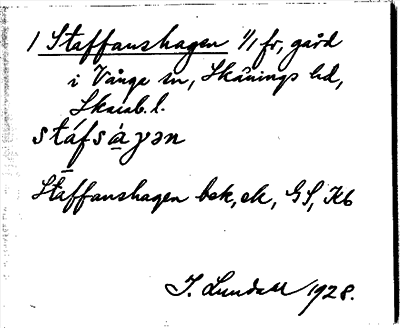 1 Staffanshagen 1/1 fr, gård
i Vånge sn, Skånings hd,
Skarab. l.
stáfsàγən
Staffanshagen bek, ek, GS, Kb
J. Lundahl 1928.